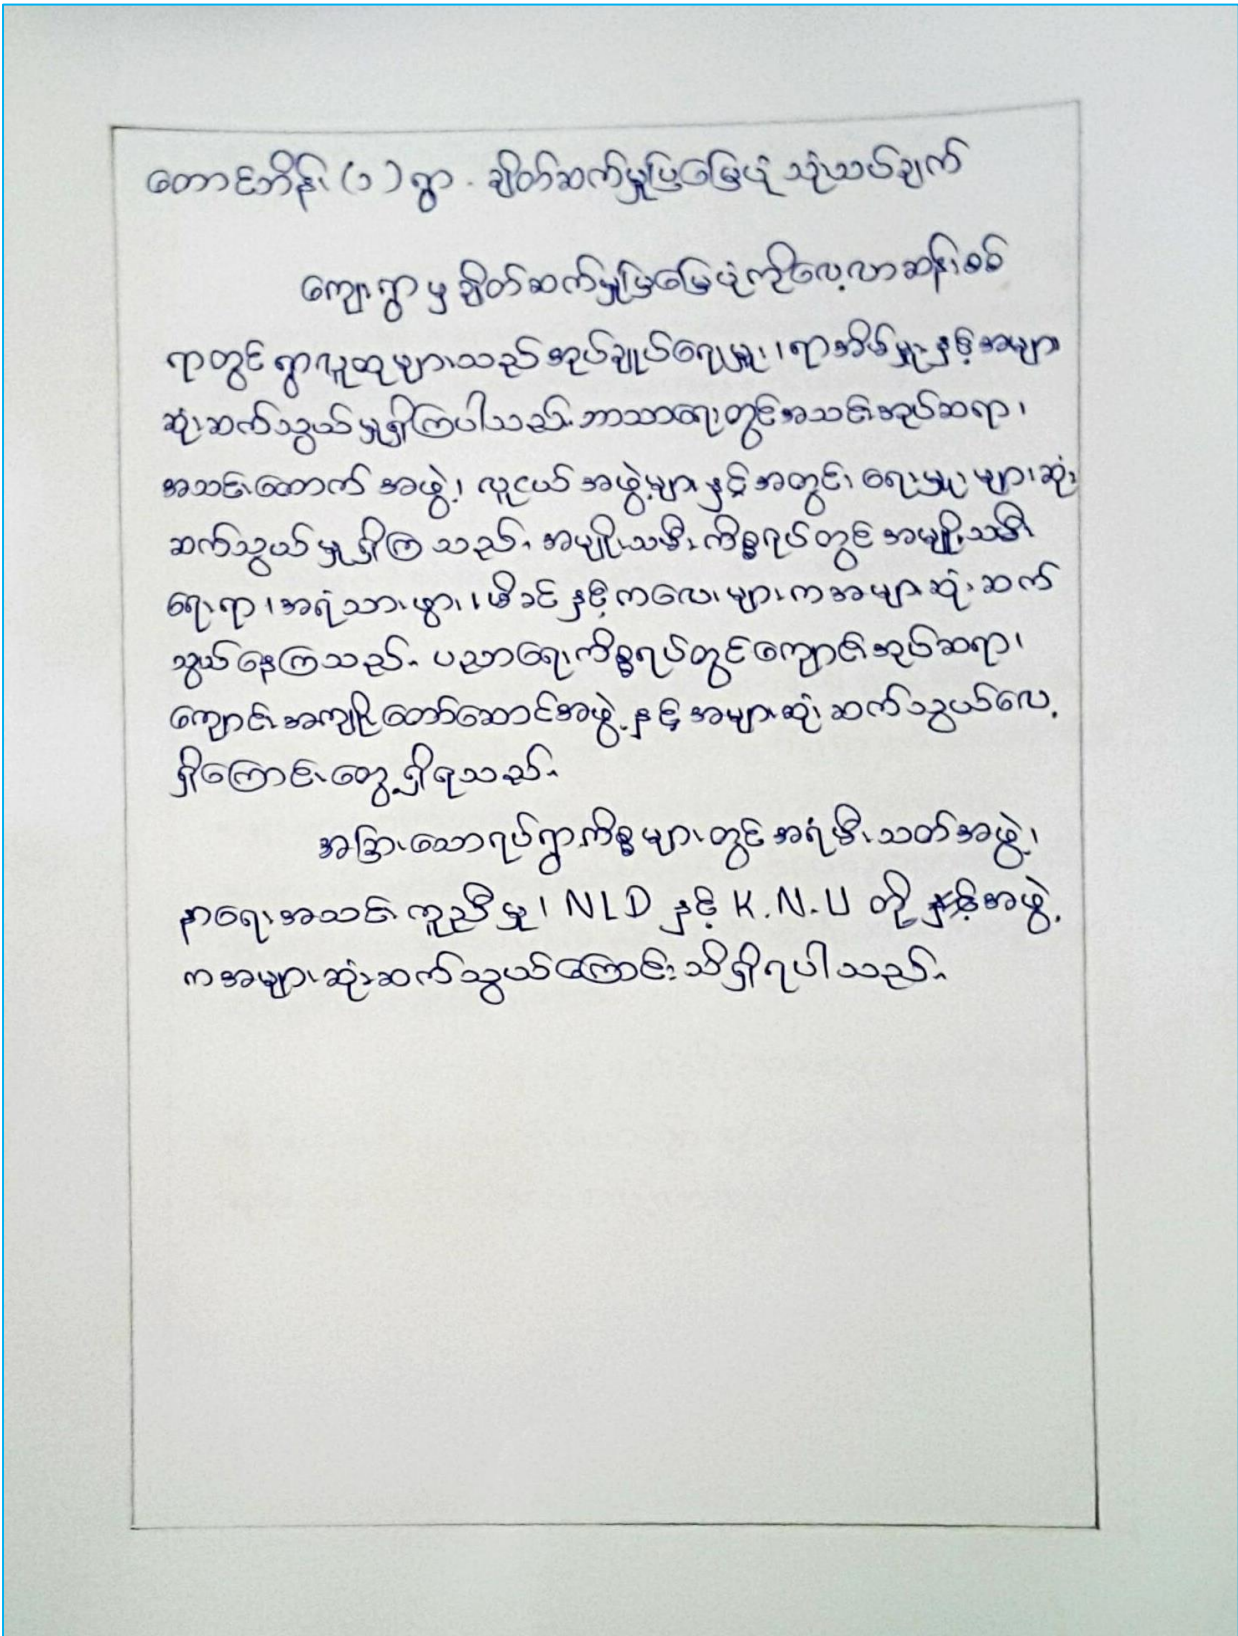 တောင်ဘိန်း (၁) ရွာ - ချိတ်ဆက်မှုပြမြေပုံ သုံးသပ်ချက်
ကျေးရွာမှ ချိတ်ဆက်မှုပြမြေပုံကိုလေ့လာဆန်းစစ်
ရာတွင် ရွာလူထုများသည် အုပ်ချုပ်ရေးမှူး၊ ရာအိမ်မှူးနှင့် အများ
ဆုံးဆက်သွယ်မှုရှိကြပါသည်။ ဘာသာရေးတွင် အသင်းအုပ်ဆရာ၊
အသင်းထောက် အဖွဲ့၊ လူငယ် အဖွဲ့များနှင့် အတွင်းရေးမှူးများ ဆုံး
ဆက်သွယ်မှုရှိကြသည်။ အမျိုးသမီးကိစ္စရပ်တွင် အမျိုးသမီး
ရေးရာ၊ အရံသားဖွား၊ မိခင်နှင့်ကလေးများက အများဆုံးဆက်
သွယ်နေကြသည်။ ပညာရေးကိစ္စရပ်တွင် ကျောင်းအုပ်ဆရာ၊
ကျောင်းအကျိုးတော်ဆောင်အဖွဲ့နှင့် အများဆုံး ဆက်သွယ်လေ့
ရှိကြောင်းတွေ့ရှိရသည်။
အခြားသောရပ်ရွာကိစ္စများတွင် အရံမီးသတ်အဖွဲ့၊
နာရေးအသင်းကူညီမှု၊ NLD နှင့် K.N.U တို့ အဖွဲ့
ကအများဆုံးဆက်သွယ်ကြောင်း သိရှိရပါသည်။